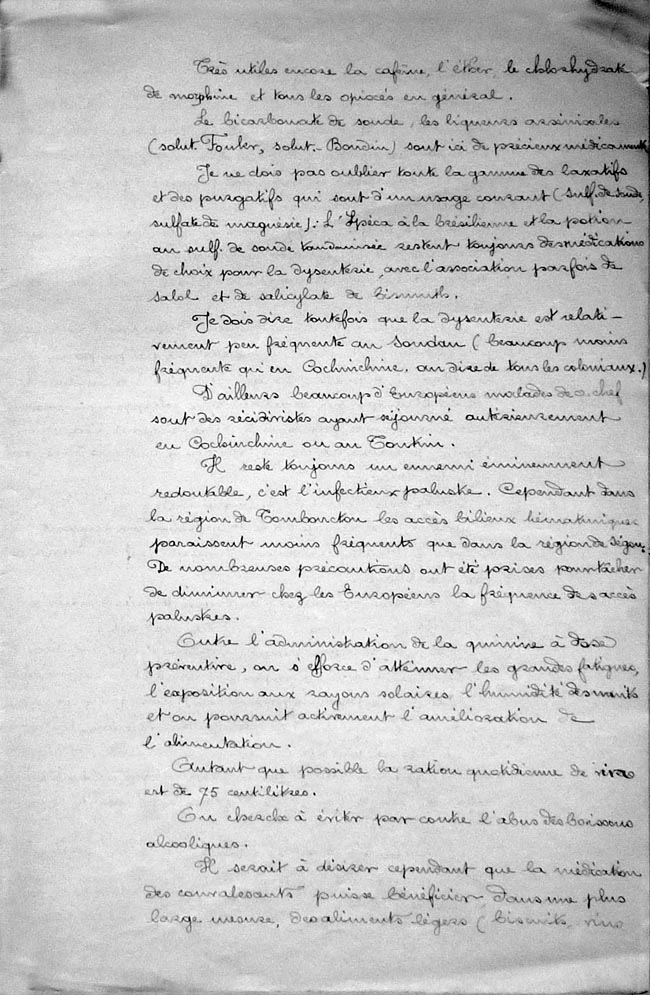 Très utiles encore la caféine, l'éther, le chlorhydrate
de morphine et tous les opiacés en général.
Le bicarbonate de soude, les liqueurs arsénicales
(solut. Fowler, solut. Boudin) sont ici de précieux médicaments
Je ne dois pas oublier toute la gamme des laxatifs
et des purgatifs qui sont d'un usage courant (sulf. de soude,
sulfate de magnésie). L'Ipéca à la brésilienne et la potion
au sulf. de soude restent toujours des médications
de choix pour la dysenterie, avec l'association parfois de
salol et de salicylate de bismuth.
Je dois dire toutefois que la dysenterie est relati-
vement peu fréquente au Soudan (beaucoup moins
fréquente qu'en Cochinchine, au dire de tous les coloniaux.)
D'ailleurs beaucoup d'Européens malades de ce chef
sont des récidivistes ayant séjourné antérieurement
en Cochinchine ou au Tonkin.
Il reste toujours un ennemi éminemment
redoutable, c'est l'infectieux palustre. Cependant dans
la région de Tombouctou les accès bilieux hématuriques
paraissent moins fréquents que dans la région de Ségou.
De nombreuses précautions ont été prises pour tâcher
de diminuer chez les Européens la fréquence des accès
palustres.
Outre l'administration de la quinine à dose
préventive, on s'efforce d'atténuer les grandes fatigues,
l'exposition aux rayons solaires, l'humidité des nuits
et on poursuit activement l'amélioration de
l'alimentation.
Autant que possible la ration quotidienne de vin
est de 75 centilitres.
On cherche à éviter par contre l'abus des boissons
alcooliques.
Il serait à désirer cependant que la médication
des convalescents puisse bénéficier, dans une plus
large mesure, des aliments légers (biscuits, vins